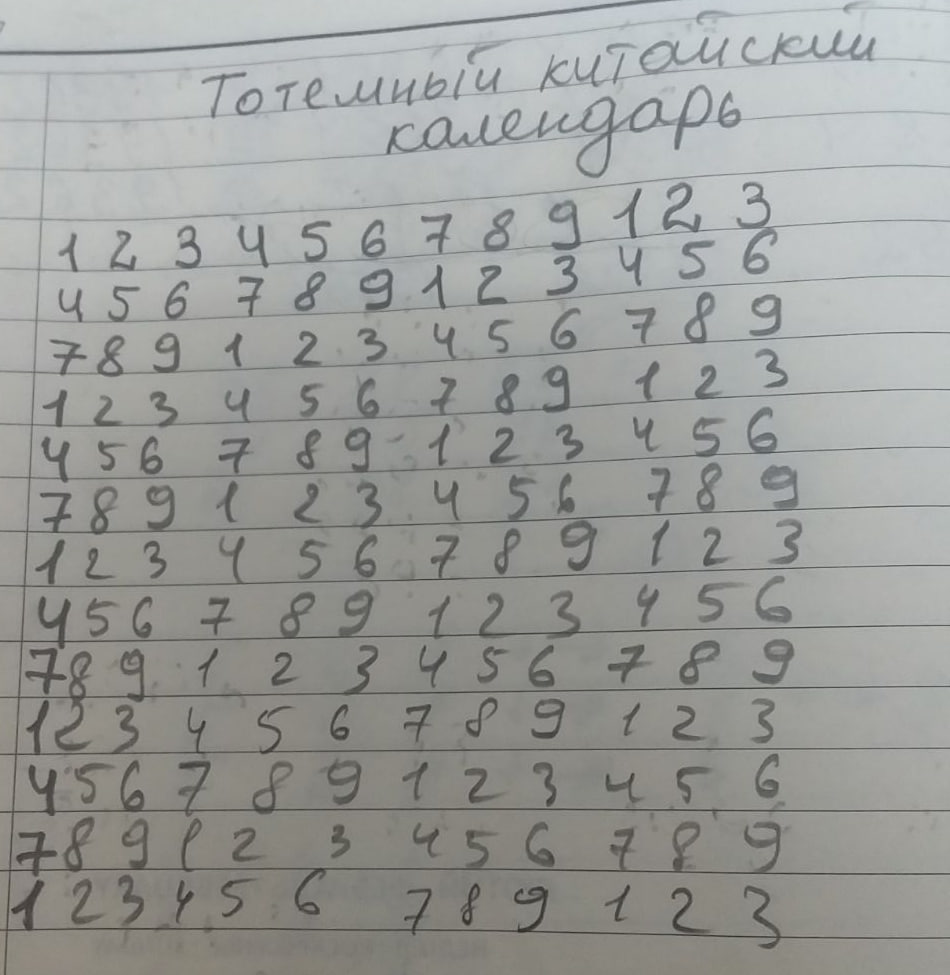 Тотемный китайский
календарь
1 2 3 4 5 6 7 8 9 1 2 3
4 5 6 7 8 9 1 2 3 4 5 6
7 8 9 1 2 3 4 5 6 7 8 9
1 2 3 4 5 6 7 8 9 1 2 3
4 5 6 7 8 9 1 2 3 4 5 6
7 8 9 1 2 3 4 5 6 7 8 9
1 2 3 4 5 6 7 8 9 1 2 3
4 5 6 7 8 9 1 2 3 4 5 6
7 8 9 1 2 3 4 5 6 7 8 9
1 2 3 4 5 6 7 8 9 1 2 3
4 5 6 7 8 9 1 2 3 4 5 6
7 8 9 1 2 3 4 5 6 7 8 9
1 2 3 4 5 6 7 8 9 1 2 3